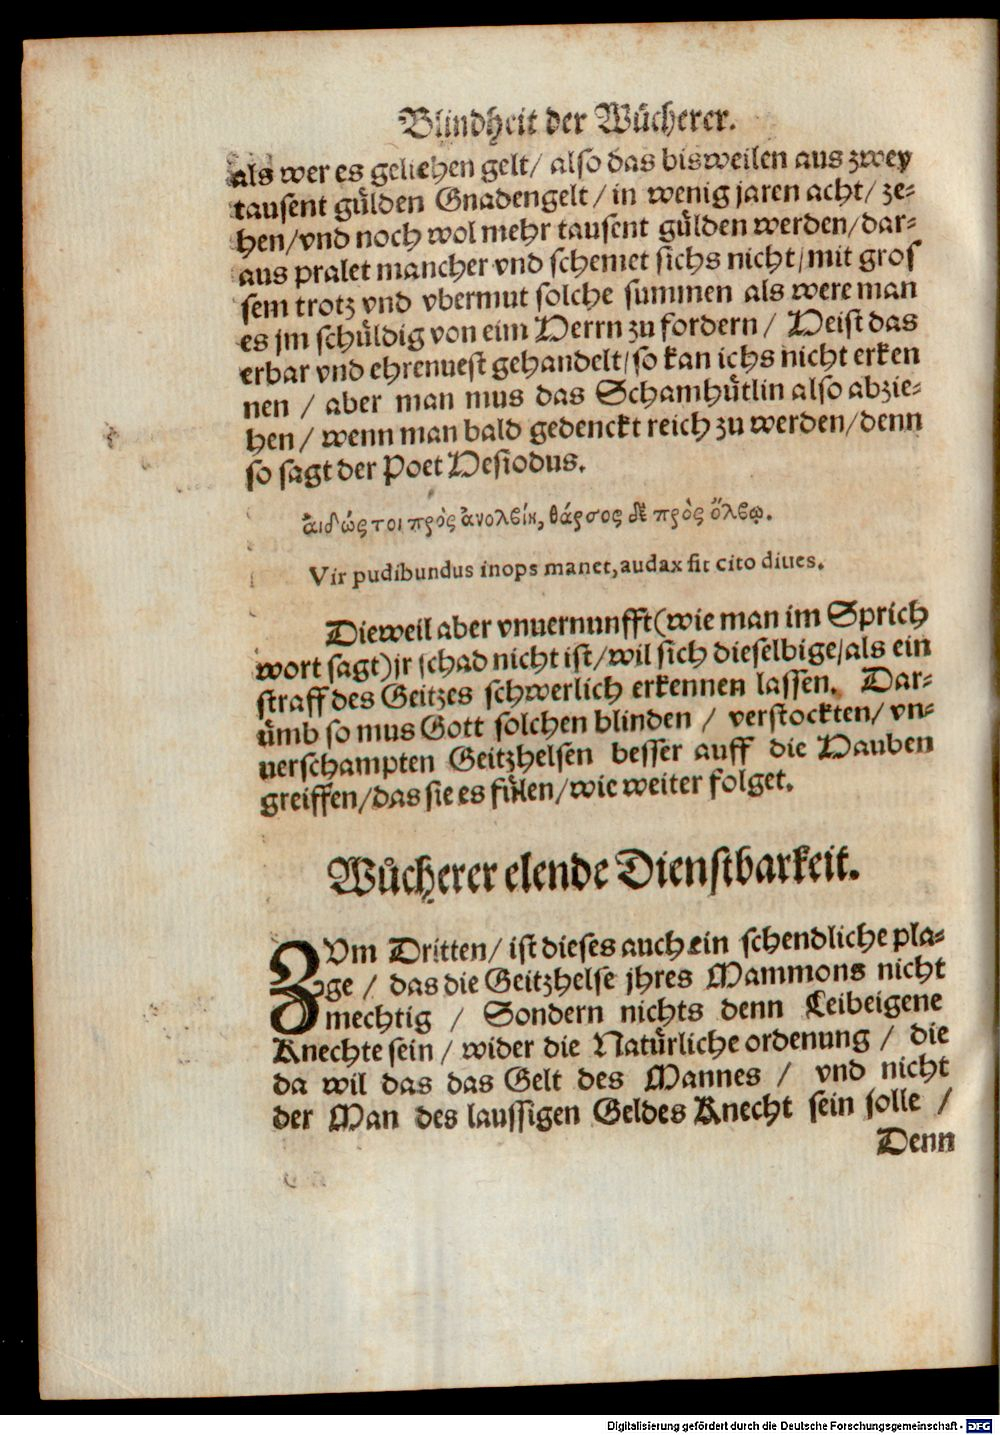 Blindheit der Wücherer.
als wer es geliehen gelt/ also das bisweilen aus zwey
tausent gülden Gnadengelt / in wenig jaren acht/ ze-
hen/vnd noch wol mehr tausent gülden werden/dar-
aus pralet mancher vnd schemet sichs nicht/mit gros
sem trotz vnd vbermut solche summen als were man
es jm schüldig von eim Herrn zu fordern / Heist das
erbar vnd ehrenuest gehandelt/so kan ichs nicht erken
nen / aber man mus das Schamhütlin also abzie-
hen / wenn man bald gedenckt reich zu werden/denn
so sagt der Poet Hesiodus.
ἀιδώς τοι πρὸς ἀνολβίη, θάρσος δὲ πρὸς ὄλβῳ.
Vir pudibundus inops manet, audax fit cito diues.
Dieweil aber vnuernunfft(wie man im Sprich
wort sagt)jr schad nicht ist/wil sich dieselbige/als ein
straff des Geitzes schwerlich erkennen lassen. Dar-
ümb so mus Gott solchen blinden / verstockten/ vn-
uerschampten Geitzhelsen besser auff die Hauben
greiffen/das sie es fülen/wie weiter folget.
Wůcherer elende Dienstbarkeit.
ZVm Dritten/ ist dieses auch ein schendliche pla-
ge / das die Geitzhelse jhres Mammons nicht
mechtig / Sondern nichts denn Leibeigene
Knechte sein / wider die Natürliche ordenung / die
da wil das das Gelt des Mannes / vnd nicht
der Man des laussigen Geldes Knecht sein solle /
Denn
Digitalisierung gefördert durch die Deutsche Forschungsgemeinschaft - DFG